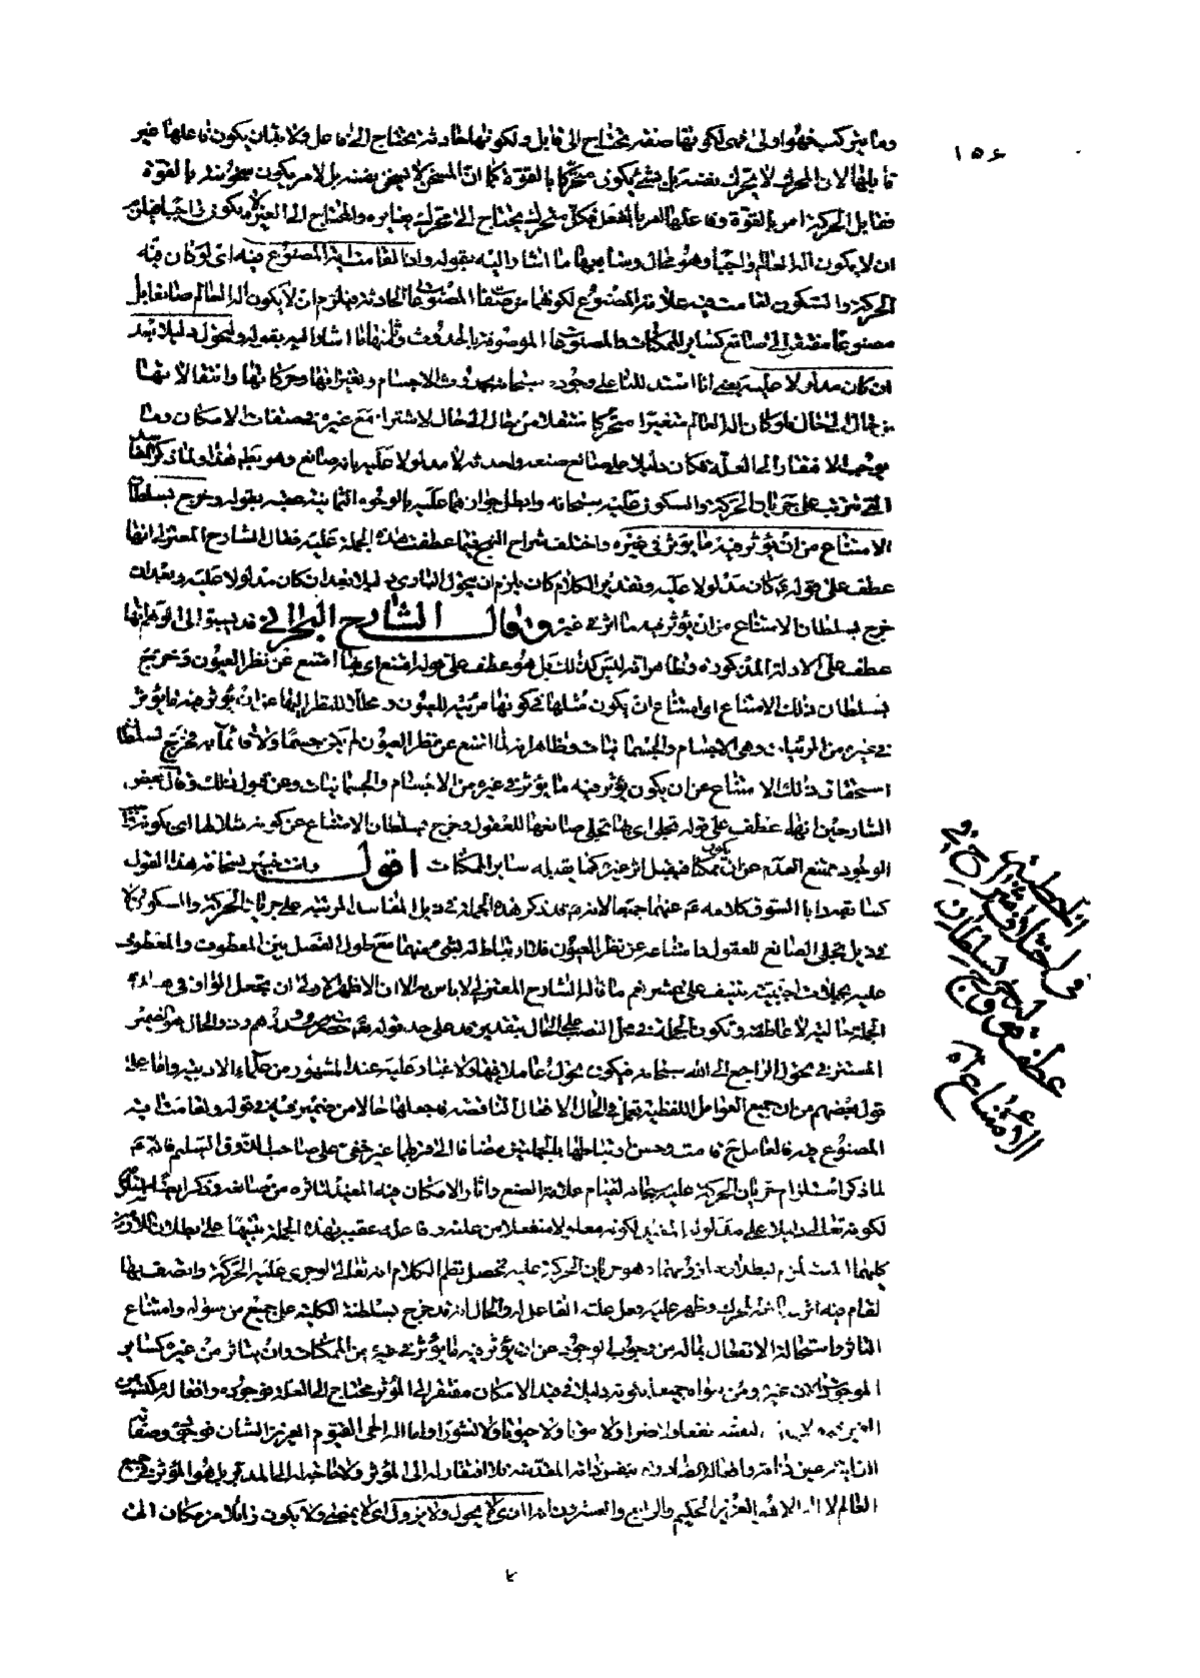 ١٥٤
وما يتركب فهو اولى فهى لكونها صفة يحتاج الى قابل ولكونها حادثة يحتاج الى فاعل ولابد ان يكون فاعلها غير
قابلها لان المحرك لا يحرك نفسه بل شىء يكون متحركا بالقوة كما ان المسخن لا يسخن نفسه بل لامر يكون متسخنا بالقوة
فقابل الحركة امر بالقوة وفاعلها امر بالفعل فكل متحرك يحتاج الى محرك يغايره والمحتاج الى الغير لا يكون
ان لا يكون اله العالم واجبا وهو محال وسابعها ما اشار اليه بقوله واذا لقامت اية المصنوع فيه اى لو كان فيه
الحركة والسكون لقامت فيه علامة المصنوع لكونهما من صفات المصنوعات الحادثة فيلزم ان لا يكون اله العالم صانعا بل
مصنوعا مفتقرا الى صانع كساير الممكنات والمصنوعات الموصوفة بالحدوث وثامنها ما اشار اليه بقوله ولتحول دليلا بعد
ان كان مدلولا عليه يعنى انا استدللنا على وجوده سبحانه بحدوث الاجسام وتغيراتها وحركاتها وانتقالاتها
من حال الى حال فلو كان اله العالم متغيرا متحركا منتقلا من حال الى حال لاشترك مع غيره فى صفات الامكان وما
يوجب الافتقار الى العلة فكان دليلا على صانع صنعه واحدثه لا مدلولا عليه بانه صانع وهو بط هذا ولما ذكر المفاسد
التى تترتب على جريان الحركة والسكون عليه سبحانه وابطل جوازهما عليه بالوجوه الثمانية عقبه بقوله وخرج بسلطان
الامتناع من ان يؤثر فيه ما يؤثر فى غيره واختلف شراح النهج فيما عطفت هذه الجملة عليه فقال الشارح المعتزلى انها
عطف على قوله ع كان مدلولا عليه وتقدير الكلام كان يلزم ان يتحول البارى دليلا بعد ان كان مدلولا عليه وبعد ان
خرج بسلطان الامتناع من ان يؤثر فيه ما اثر فى غيره وقال الشارح البحرانى قد يسبق الى الوهم انها
عطف على الادلة المذكورة وظاهر انه ليس كذلك بل هو عطف على قوله امتنع اى بها امتنع عن نظر العيون وخرج
بسلطان ذلك الامتناع اى امتناع ان يكون مثلها فى كونها مرئية للعيون ومحلا للنظر اليها عن ان يؤثر فيه ما يؤثر
فى غيره من المرئيات وهى الاجسام والجسمانيات وظاهر انه لما امتنع عن نظر العيون لم يكن جسما ولا قائما به فخرج بسلطان
استحقاق ذلك الامتناع عن ان يكون يؤثر فيه ما يؤثر فى غيره من الاجسام والجسمانيات وعن قبول ذلك وقال بعض
الشارحين انها عطف على قوله تجلى اى بها تجلى صانعها للعقول وخرج بسلطان الامتناع عن كونه مثلا لها اى بكونه واجب
الوجود ممتنع العدم عن ان يكون ممكنا فيقبل اثر غيره كما يقبله ساير الممكنات اقول وانت خبير بسخافة هذا القول
كسابقه لاباء السوق كلامه ع عنهما جميعا لانه ع قد ذكر هذه الجملة فى ذيل المفاسد المرتبة على جريان الحركة والسكون لا
فى ذيل تجلى الصانع للعقول وامتناعه عن نظر العيون فلا ارتباط له بشىء منهما مع طول الفصل بين المعطوف والمعطوف
عليه بجملات اجنبية تنيف على عشر نعم ما قاله الشارح المعتزلى لا باس به الا ان الاظهر الاولى ان يجعل الواو فى هذه
الجملة حالية لا عاطفة وتكون الجملة فى محل النصب على الحال بتقدير قد على حد قوله تع حصرت صدورهم وذو الحال هو الضمير
المستتر فى تحول الراجع الى الله سبحانه فيكون تحول عاملا فيها ولا غبار عليه عند المشهور من علماء الادبية واما على
قول بعضهم من ان جميع العوامل اللفظية تعمل فى الحال الا الافعال الناقصة فاجعلها حالا من ضمير فيه فى قوله ولقامت اية
المصنوع فيه فالعامل ح قامت وحسن ارتباطها بالجملتين مضافا الى قربهما غير خفى على صاحب الذوق السليم فانه ع
لما ذكر استلزام جريان الحركة عليه سبحانه لقيام علامة الصنع واثار الامكان فيه المفيد لتأثره من صانعه وذكر ايضا استلزامه
لكونه تعالى دليلا على مدلول المفيد لكونه معلولا منفعلا من علته وفاعله عقبه بهذه الجملة تنبيها على بطلان اللازمين
كليهما المستلزم لبطلان ملزومهما وهو جريان الحركة عليه فحصل نظم الكلام انه تعالى لو جرى عليه الحركة واتصف بها
لقام فيه اثر المحرك وظهر عليه وعلى علته الفاعلة والحال انه قد خرج بسلطنة الكلية على جميع من سواه وامتناع
التاثر واستحالة الانفعال بماله من وجوب الوجود عن ان يؤثر فيه ما يؤثر فى غيره من الممكنات وان يتاثر من غيره كساير
الموجودات لان غيره ومن سواه جميعا بكونه ذليلا فى قيد الامكان مفتقر الى المؤثر محتاج الى العلة فى وجوده وافعاله مكتسب من
الغير لا يملك لنفسه نفعا ولا ضرا ولا موتا ولا حيوتا ولا نشورا واما اله الحى القيوم العزيز الشان فوجوده وصفاته
الذاتية عين ذاته وافعاله الصادرة بنفس ذاته المقدسة فلا افتقار له الى المؤثر ولا حاجة له الى المدبر بل هو المؤثر فى جميع
العالم لا اله الا هو العزيز الحكيم والرابع والعشرون انه الذى لا يحول ولا يزول اى لا يمضى ولا يكون زائلا من مكان الى
فى اختلاف شراح
الخطبة
قوله وخرج بسلطان
عطف
الامتناع اه